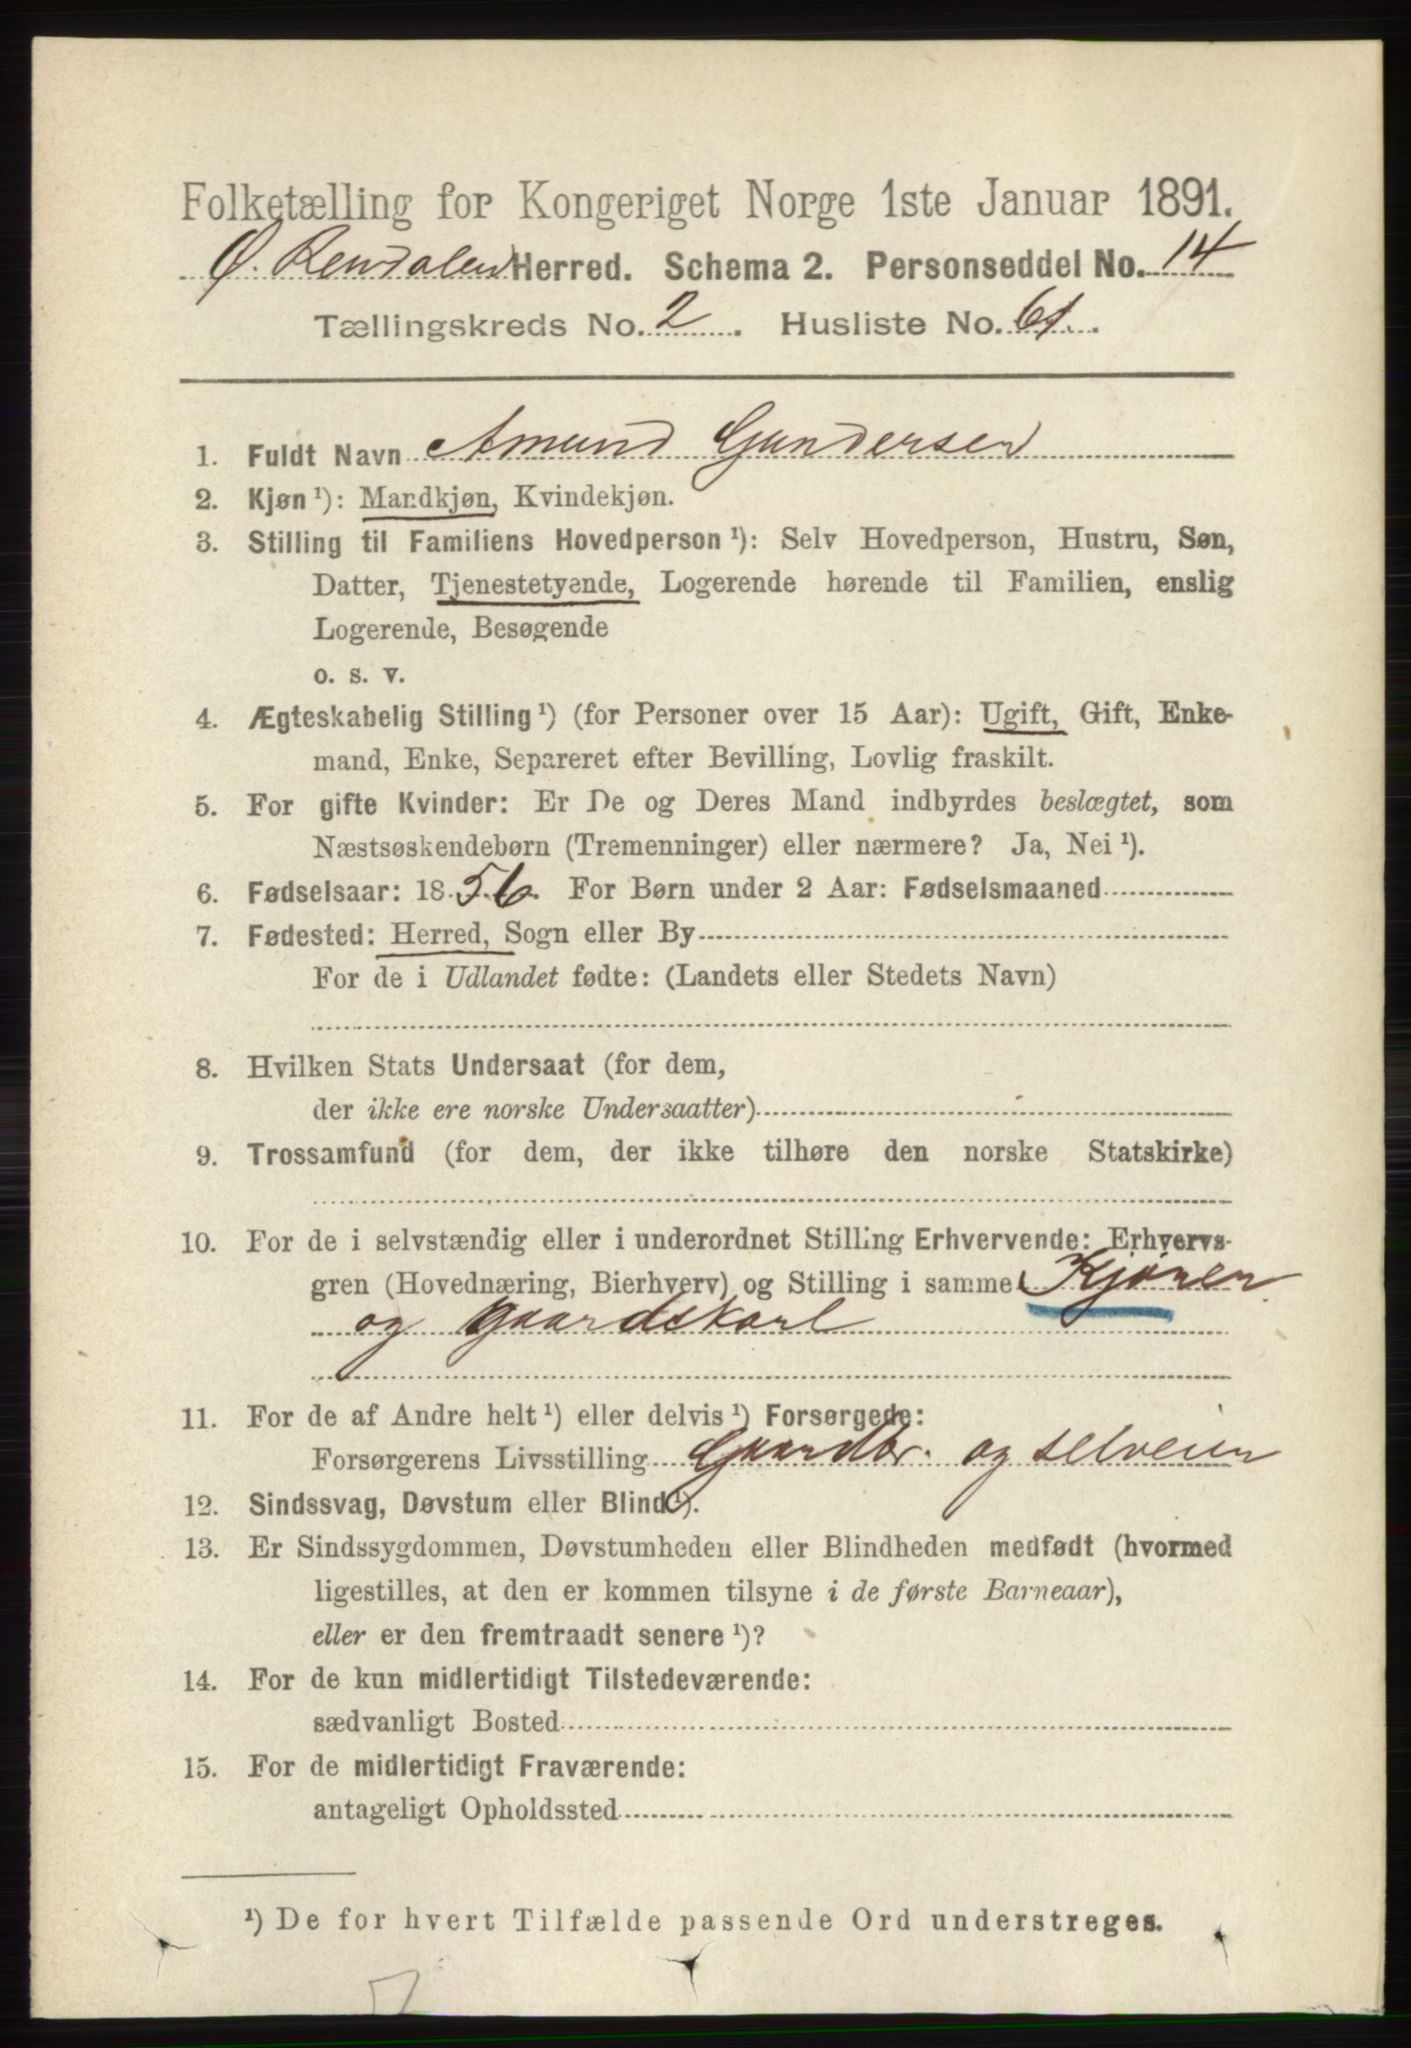 Folketælling for Kongeriget Norge 1ste Januar 1891.
Ø. Rendalen Herred. Schema 2. Personseddel No. 14
Tællingskreds No. 2. Husliste No. 61.
1. Fuldt Navn Amund Gundersen
2. Kjøn ¹): Mandkjøn, Kvindekjøn.
3. Stilling til Familiens Hovedperson ¹): Selv Hovedperson, Hustru, Søn,
Datter, Tjenestetyende, Logerende hørende til Familien, enslig
Logerende, Besøgende
o. s. v.
4. Ægteskabelig Stilling ¹) (for Personer over 15 Aar): Ugift, Gift, Enke-
mand, Enke, Separeret efter Bevilling, Lovlig fraskilt.
5. For gifte Kvinder: Er De og Deres Mand indbyrdes beslægtet, som
Næstsøskendebørn (Tremenninger) eller nærmere? Ja, Nei ¹).
6. Fødselsaar: 1856. For Børn under 2 Aar: Fødselsmaaned
7. Fødested: Herred, Sogn eller By
For de i Udlandet fødte: (Landets eller Stedets Navn)
8. Hvilken Stats Undersaat (for dem,
der ikke ere norske Undersaatter)
9. Trossamfund (for dem, der ikke tilhøre den norske Statskirke)
10. For de i selvstændig eller i underordnet Stilling Erhvervende: Erhvervs-
gren (Hovednæring, Bierhverv) og Stilling i samme Kjører
og gaardskarl
11. For de af Andre helt ¹) eller delvis ¹) Forsørgede:
Forsørgerens Livsstilling Gaardbr. og selveier
12. Sindssvag, Døvstum eller Blind ¹).
13. Er Sindssygdommen, Døvstumheden eller Blindheden medfødt (hvormed
ligestilles, at den er kommen tilsyne i de første Barneaar),
eller er den fremtraadt senere ¹)?
14. For de kun midlertidigt Tilstedeværende:
sædvanligt Bosted
15. For de midlertidigt Fraværende:
antageligt Opholdssted
¹) De for hvert Tilfælde passende Ord understreges.